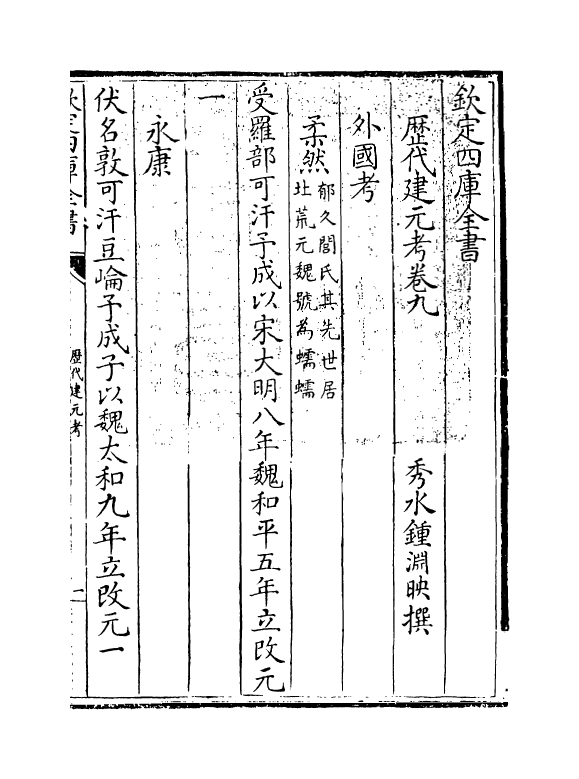 欽定四庫全書
歴代建元考卷九
秀水鍾淵映撰
外國考
柔然郁久閭氏其先世居
北荒元魏號為蠕蠕
受羅部可汗予成以宋大明八年魏和平五年立改元
一
永康
伏名敦可汗豆崘予成子以魏太和九年立改元一
欽定四庫全書
歴代建元考
一